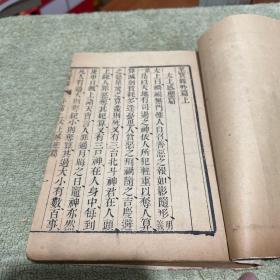 太上感應篇
太上曰禍福無門惟人自召善惡之報如影隨形
是以天地有司過之神依人所犯輕重以奪人算
算減則貧耗多逢憂患人皆惡之刑禍隨之吉慶避
之惡星災之算盡則死又有三台北斗神君在人頭
上錄人罪惡奪其紀算又有三尸神在人身中每到
庚申日輒上詣天曹言人罪過月晦之日竈神亦然
凡人有過大則奪紀小則奪算其過大小有數百事